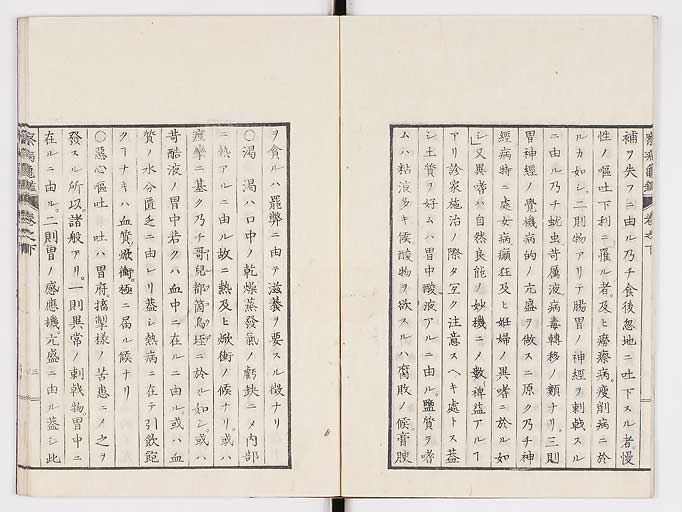 補ヲ失フニ由ル乃チ食後忽地ニ吐下スル者慢
性ノ嘔吐下利ニ罹ル者及ヒ癆瘵病瘦削病ニ於
ルカ如シ二則物アリテ腸胃ノ神經ヲ刺戟スル
ニ由ル乃チ蚘虫苛厲液病毒轉移ノ類ナリ三則
胃神經ノ覺機病的ノ亢盛ヲ做スニ原ク乃チ神
經病特ニ處女病癲狂及ヒ妊婦ノ異嗜ニ於ル如
シ又異嗜ハ自然良能ノ妙機ニメ數裨益アルヿ
アリ診家施治ノ際タ宜ク注意スヘキ處トス蓋
シ土質ヲ好ムハ胃中酸液アルニ由ル鹽質ヲ嗜
ムハ粘液多キ候酸物ヲ欲スルハ腐敗ノ候膏腴
ヲ貪ルハ罷弊ニ由テ滋養ヲ要スル徴ナリ
〇渴 渴ハ口中ノ乾燥蒸發氣ノ虧缺ニメ内部
ニ熱アルニ由ル故ニ熱及ヒ焮衝ノ候ナリ或ハ
痙攣ニ基ク乃チ哥兒都箇烏坯ニ於ル如シ或ハ
苛酷液ノ胃中若クハ血中ニ在ルニ由ル或ハ血
質ノ水分匱乏ニ由レリ蓋シ熱病ニ在テ引飲飽
クヿナキハ血質焮衝極ニ届ル候ナリ
〇惡心嘔吐 吐ハ胃府搐掣樣ノ苦患ニメ之ヲ
發スル所以諸般アリ一則異常ノ刺戟物胃中ニ
在ルニ由ル二則胃ノ感應機亢盛ニ由ル蓋シ此
察病龜鑑 卷之下